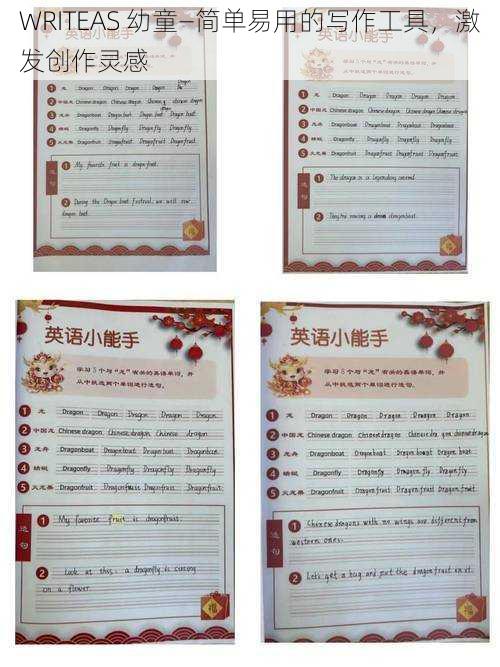 WRITEAS 幼童—简单易用的写作工具，激
发创作灵感
英语小能手
学习 5 个与“龙”有关的英语单词，并
从中挑选两个单词进行造句。
1 龙 Dragon Dragon Dragon Dragon Dragon
2 中国龙 Chinese dragon Chinese dragon Chinese dragon
3 龙舟 Dragonboat Dragonboat Dragon boat Dragon boat
4 蜻蜓 Dragonfly Dragonfly Dragonfly Dragonfly
5 火龙果 Dragonfruit Dragonfruit Dragonfruit Dragonfruit
造句
1 My favorite fruit is dragonfruit.
2 During the Dragon boat festival, we will row
dragon boat.
福
英语小能手
学习 5 个与“龙”有关的英语单词，并
从中挑选两个单词进行造句。
1 龙 Dragon Dragon Dragon Dragon Dragon
2 中国龙 Chinese dragon Chinese dragon Chinese dragon
3 龙舟 Dragonboat Dragonboat Dragonboat Dragonboat
4 蜻蜓 Dragonfly Dragonfly Dragonfly Dragonfly
5 火龙果 Dragonfruit Dragonfruit Dragonfruit Dragonfruit
造句
1 The dragon is a legendary
2 They're rowing a dragonboat.
福
英语小能手
学习 5 个与“龙”有关的英语单词，并
从中挑选两个单词进行造句。
1 龙 Dragon Dragon Dragon Dragon Dragon
2 中国龙 Chinese dragon Chinese dragon Chinese dragon
3 龙舟 Dragonboat Dragonboat Dragonboat Dragonboat
4 蜻蜓 Dragonfly Dragonfly Dragonfly Dragonfly
5 火龙果 Dragonfruit Dragonfruit Dragonfruit Dragonfruit
造句
1 My favorite fruit is dragonfruit.
2 Look at this, a dragonfly is
on a flower.
福
英语小能手
学习 5 个与“龙”有关的英语单词，并
从中挑选两个单词进行造句。
1 龙 Dragon Dragon Dragon Dragon Dragon
2 中国龙 Chinese dragon Chinese dragon Chinese dragon Chinese dragon
3 龙舟 Dragonboat Dragon boat Dragon boat Dragon boat
4 蜻蜓 Dragonfly Dragonfly Dragon fly Dragon fly
5 火龙果 Dragonfruit Dragon fruit Dragon fruit Dragon fruit
造句
1 Chinese dragons with no wings are different from
western ones.
2 Let's get a bug and put the dragonfruit on it.
福